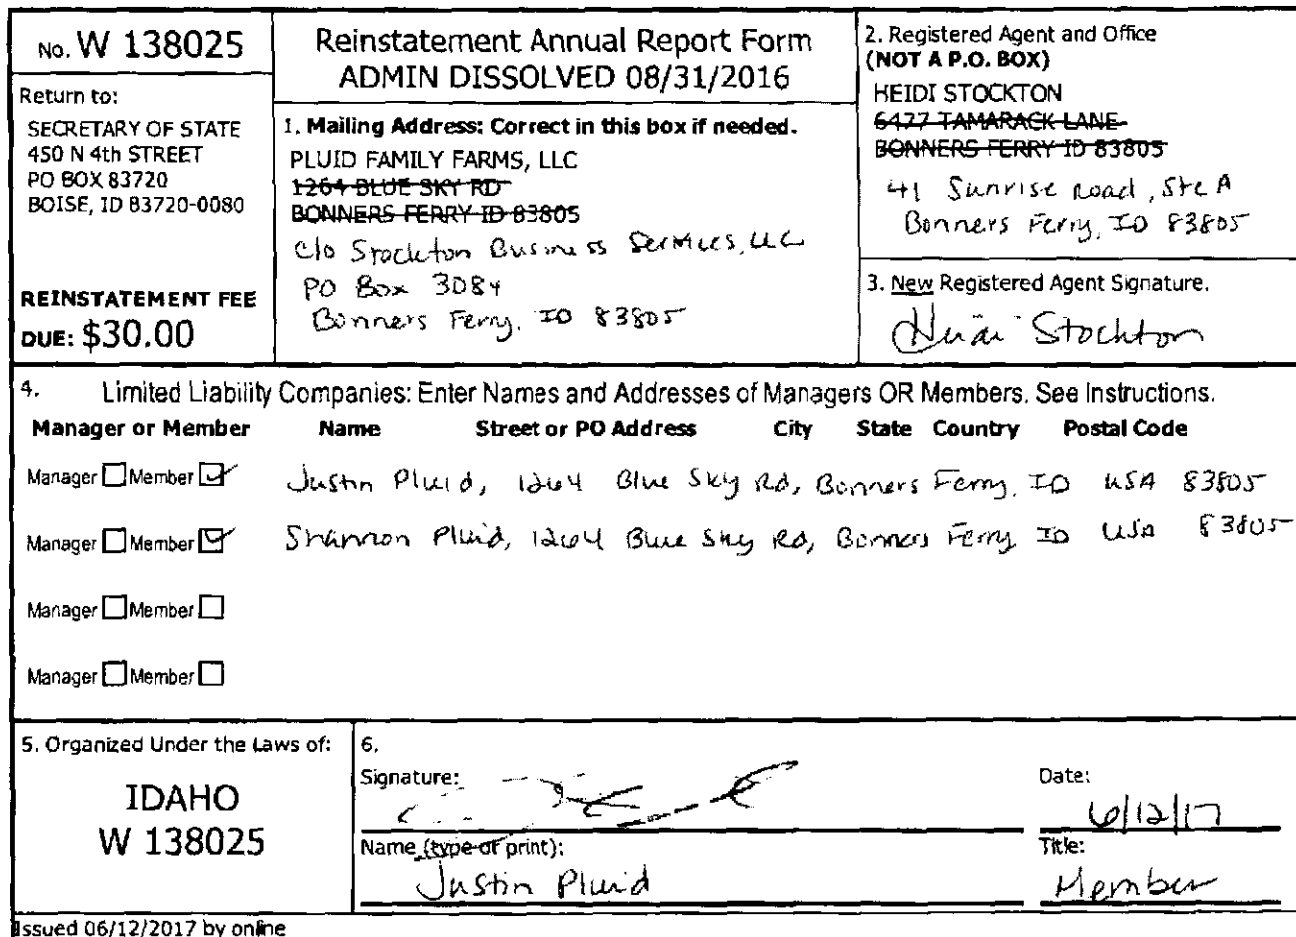 No. W 138025
Return to:
SECRETARY OF STATE
450 N 4th STREET
PO BOX 83720
BOISE, ID 83720-0080
REINSTATEMENT FEE
DUE: $30.00
Reinstatement Annual Report Form
ADMIN DISSOLVED 08/31/2016
1. Mailing Address: Correct in this box if needed.
PLUID FAMILY FARMS, LLC
1264 BLUE SKY RD
BONNERS FERRY ID 83805
c/o Stockton Business Services, LLC
PO Box 3084
Bonners Ferry, ID 83805
2. Registered Agent and Office
(NOT A P.O. BOX)
HEIDI STOCKTON
6477 TAMARACK LANE
BONNERS FERRY ID 83805
41 Sunrise Road, Ste A
Bonners Ferry, ID 83805
3. New Registered Agent Signature.
Heidi Stockton
4. Limited Liability Companies: Enter Names and Addresses of Managers OR Members. See Instructions.
Manager or Member Name Street or PO Address City State Country Postal Code
Manager Member Justin Pluid, 1264 Blue Sky Rd, Bonners Ferry, ID USA 83805
Manager Member Shannon Pluid, 1264 Blue Sky Rd, Bonners Ferry ID USA 83805
Manager Member
Manager Member
5. Organized Under the Laws of:
IDAHO
W 138025
6.
Signature:
Date:
6/12/17
Name (type or print):
Justin Pluid
Title:
Member
Issued 06/12/2017 by online